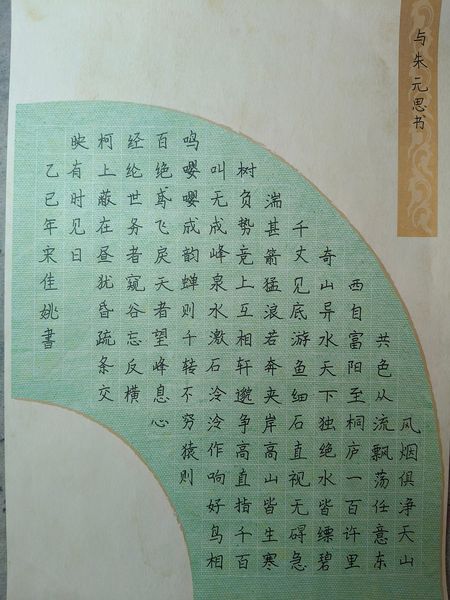 与朱元思书
风烟俱净天山
共色从流飘荡任意东
西自富阳至桐庐一百许里
奇山异水天下独绝水皆缥碧
千丈见底游鱼细石直视无碍急
湍甚箭猛浪若奔夹岸高山皆生寒
树负势竞上互相轩邈争高直指千百
叫无成峰泉水激石泠泠作响好鸟相
鸣嘤嘤成韵蝉则千转不穷猿则
百绝鸢飞戾天者望峰息心
经纶世务者窥谷忘反横
柯上蔽在昼犹昏疏条交
映有时见日
乙巳年宋佳姚書